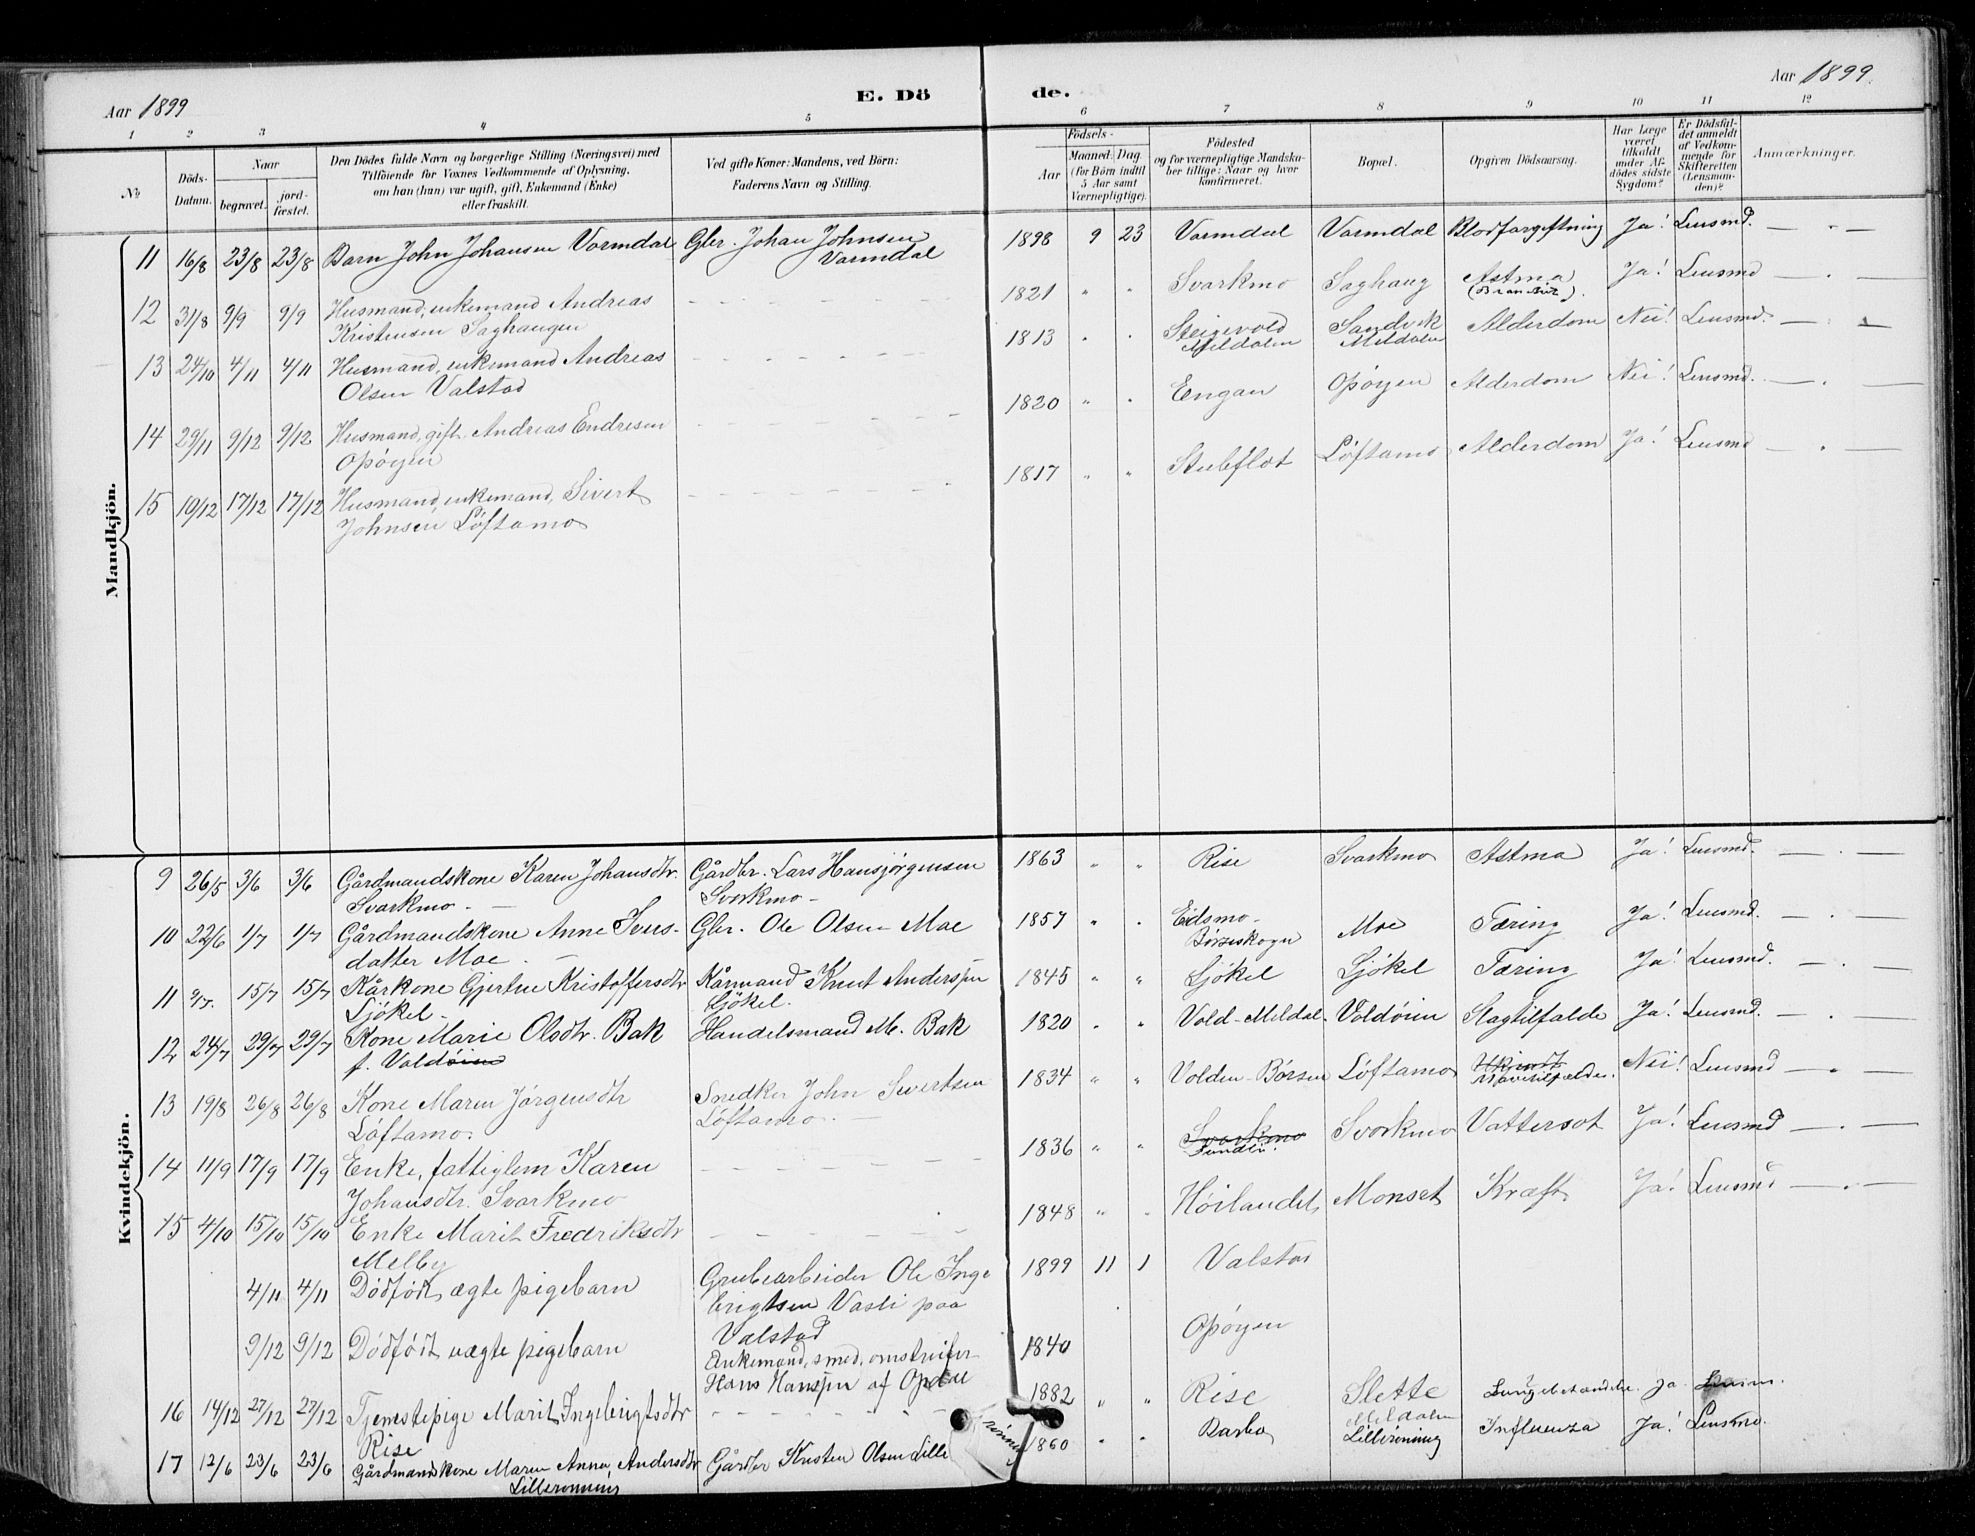 Aar 1899
E. Dö
de.
Aar 1899.
1 2 3 4 5 6 7 8 9 10 11 12
No.
Döds-Datum.
Naar
begravet.
jord-fæstet.
Den Dödes fulde Navn og borgerlige Stilling (Næringsvei) med
Tilföiende for Voxnes Vedkommende af Oplysning,
om han (hun) var ugift, gift, Enkemand (Enke)
eller fraskilt.
Ved gifte Koner: Mandens, ved Börn:
Faderens Navn og Stilling.
Födsels-
Aar
Maaned. Dag
(for Börn indtil
5 Aar samt
Værnepligtige).
Födested
og for værnepligtige Mandska-
ber tillige: Naar og hvor
konfirmeret.
Bopæl.
Opgiven Dödsaarsag.
Har Læge
været
tilkaldt
under Af-
dödes sidste
Sygdom?
Er Dödsfal-
det anmeldt
af Vedkom-
mende for
Skifteretten
(Lensman-
den)?
Anmærkninger.
Mandkjön.
11 16/8 23/8 23/8 Barn John Johansen Vormdal Gbr. Johan Johnsen 1898 9 23 Vormdal Vormdal Blodforgiftning Ja! Lensmd. — " —
Vormdal
12 31/8 9/9 9/9 Husmand, enkemand Andreas - - - 1821 " " Svorkmo Saghaug Astma Ja! Lensmd — . —
Kristensen Saghaugen
13 24/10 4/11 4/11 Husmand, enkemand Andreas - - - 1813 " " Steigevold Sandvik Alderdom Nei! Lensmd.
Meldalen Meldalen
Olsen Valstad
14 29/11 9/12 9/12 Husmand, gift, Andreas Endresen - - - 1820 " " Eengan Opøyen Alderdom Nei! Lensmd. — . —
Opøyen
15 10/12 17/12 17/12 Husmand, enkemand, Sivert - - - 1817 " " Stubflot Løftamo Alderdom Ja! Lensmd — . —
Johnsen Løftamo
Kvindekjön.
9 26/5 3/6 3/6 Gårdmandskone Karen Johansdtr. Gårdbr. Lars Hansjørgensen 1863 " " Rise Svorkmo Astma Ja! Lensmd. — . —
Svorkmo - Svorkmo -
10 22/6 1/7 1/7 Gårdmandskone Anne Ivers- Gbr. Ole Olsen Moe 1857 " " Eidsmo- Moe Tæring Ja! Lensmd. — . —
datter Moe. — Børseskogn
11 15/7 15/7 Kårkone Gjertine Kristoffersdtr Kårmand Knut Anderssen 1845 " " Ljøkel Ljøkel Tæring Ja! Lensmd. — . —
Ljøkel - Ljøkel.
12 24/7 29/7 29/7 Kone Marie Olsdtr. Bak Handelsmand M. Bak 1820 " " Vold-Meldal. Voldøien Slagtilfælde Ja! Lensmd. — . —
f. Voldøien
13 19/8 26/8 26/8 Kone Maren Jørgensdtr Snedker John Sivertsen 1834 " " Volden-Børsen Løftamo Ukjendt Nei! Lensmd — . —
Løftamo. Løftamo. —
14 11/9 17/9 17/9 Enke, fattiglem Karen - - - 1836 " " Svorkmo Svorkmo Vattersot Ja! Lensmd — . —
Johansdtr. Svorkmo
15 4/10 15/10 15/10 Enke Marit Fredriksdtr - - - 1848 " " Høilandet Monset Kræft Ja! Lensmd — . —
Melby
4/11 4/11 Dødfødt, ægte pigebarn Grubearbeider Ole Inge 1899 11 1 Valstad
brigtsen Vasli paa
Valstad
9/12 9/12 Dødfødt uægte pigebarn Enkemand, smed, omstreifer 1840 Opøyen
Hans Hanssen af Opdal
16 14/12 27/12 27/12 Tjenestepige Marit Ingebrigtsdtr - - - 1882 " " Rise Slette Lungebetændelse Ja
Rise Meldalen
17 12/6 23/6 23/6 Gårdmandskone Maren Anna Andersdtr Gårdbr Kristen Olsen Lille 1860 " " Lillerønning Influenza Ja! Lensmd.
Lillerønning rønning